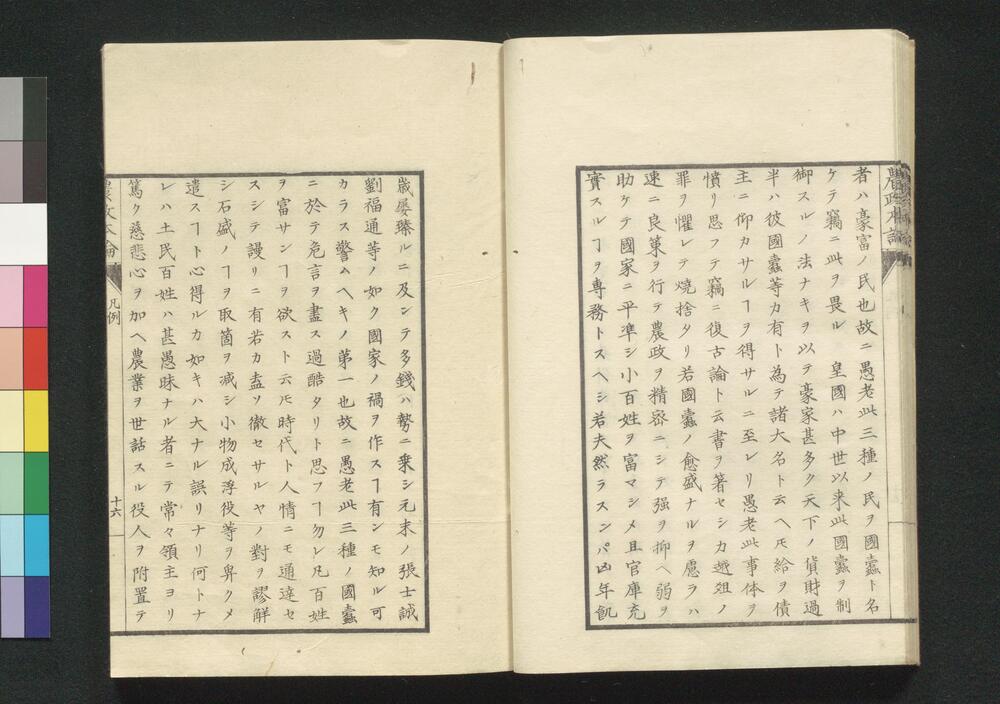 農政本論
者ハ豪富ノ民也故ニ愚老此三種ノ民ヲ國蠹ト名
ケテ竊ニ此ヲ畏ル　皇國ハ中世以来此國蠹ヲ制
御スルノ法ナキヲ以テ豪家甚多ク天下ノ貨財過
半ハ彼國蠹等カ有ト為テ諸大名ト云ヘ𪜈給ヲ債
主ニ仰カサルヿヲ得サルニ至レリ愚老此事体ヲ
憤リ思フテ竊ニ復古論ト云書ヲ著セシカ越俎ノ
罪ヲ懼レテ燒捨タリ若國蠹ノ愈盛ナルヲ慮ラハ
速ニ良策ヲ行テ農政ヲ精密ニシテ强ヲ抑ヘ弱ヲ
助ケテ國家ニ平準シ小百姓ヲ富マシメ且官庫充
實スルヿヲ専務トスヘシ若夫然ラスンハ凶年飢
歳屡臻ルニ及ンテ多錢ハ勢ニ乗シ元末ノ張士誠
劉福通等ノ如ク國家ノ禍ヲ作スヿ有ンモ知ル可
カラス警ムヘキノ第一也故ニ愚老此三種ノ國蠹
ニ於テ危言ヲ盡ス過酷タリト思フヿ勿レ凡百姓
ヲ富サンヿヲ欲スト云𪜈時代ト人情ニモ通達セ
スシテ謾リニ有若カ盍ソ徹セサルヤノ對ヲ謬解
シ石盛ノヿヲ取箇ヲ減シ小物成浮役等ヲ畀クメ
遣スヿト心得ルカ如キハ大ナル誤リナリ何トナ
レハ土民百姓ハ甚愚昧ナル者ニテ常々領主ヨリ
篤ク慈悲心ヲ加ヘ農業ヲ世話スル役人ヲ附置テ
農政本論
凡例
十六